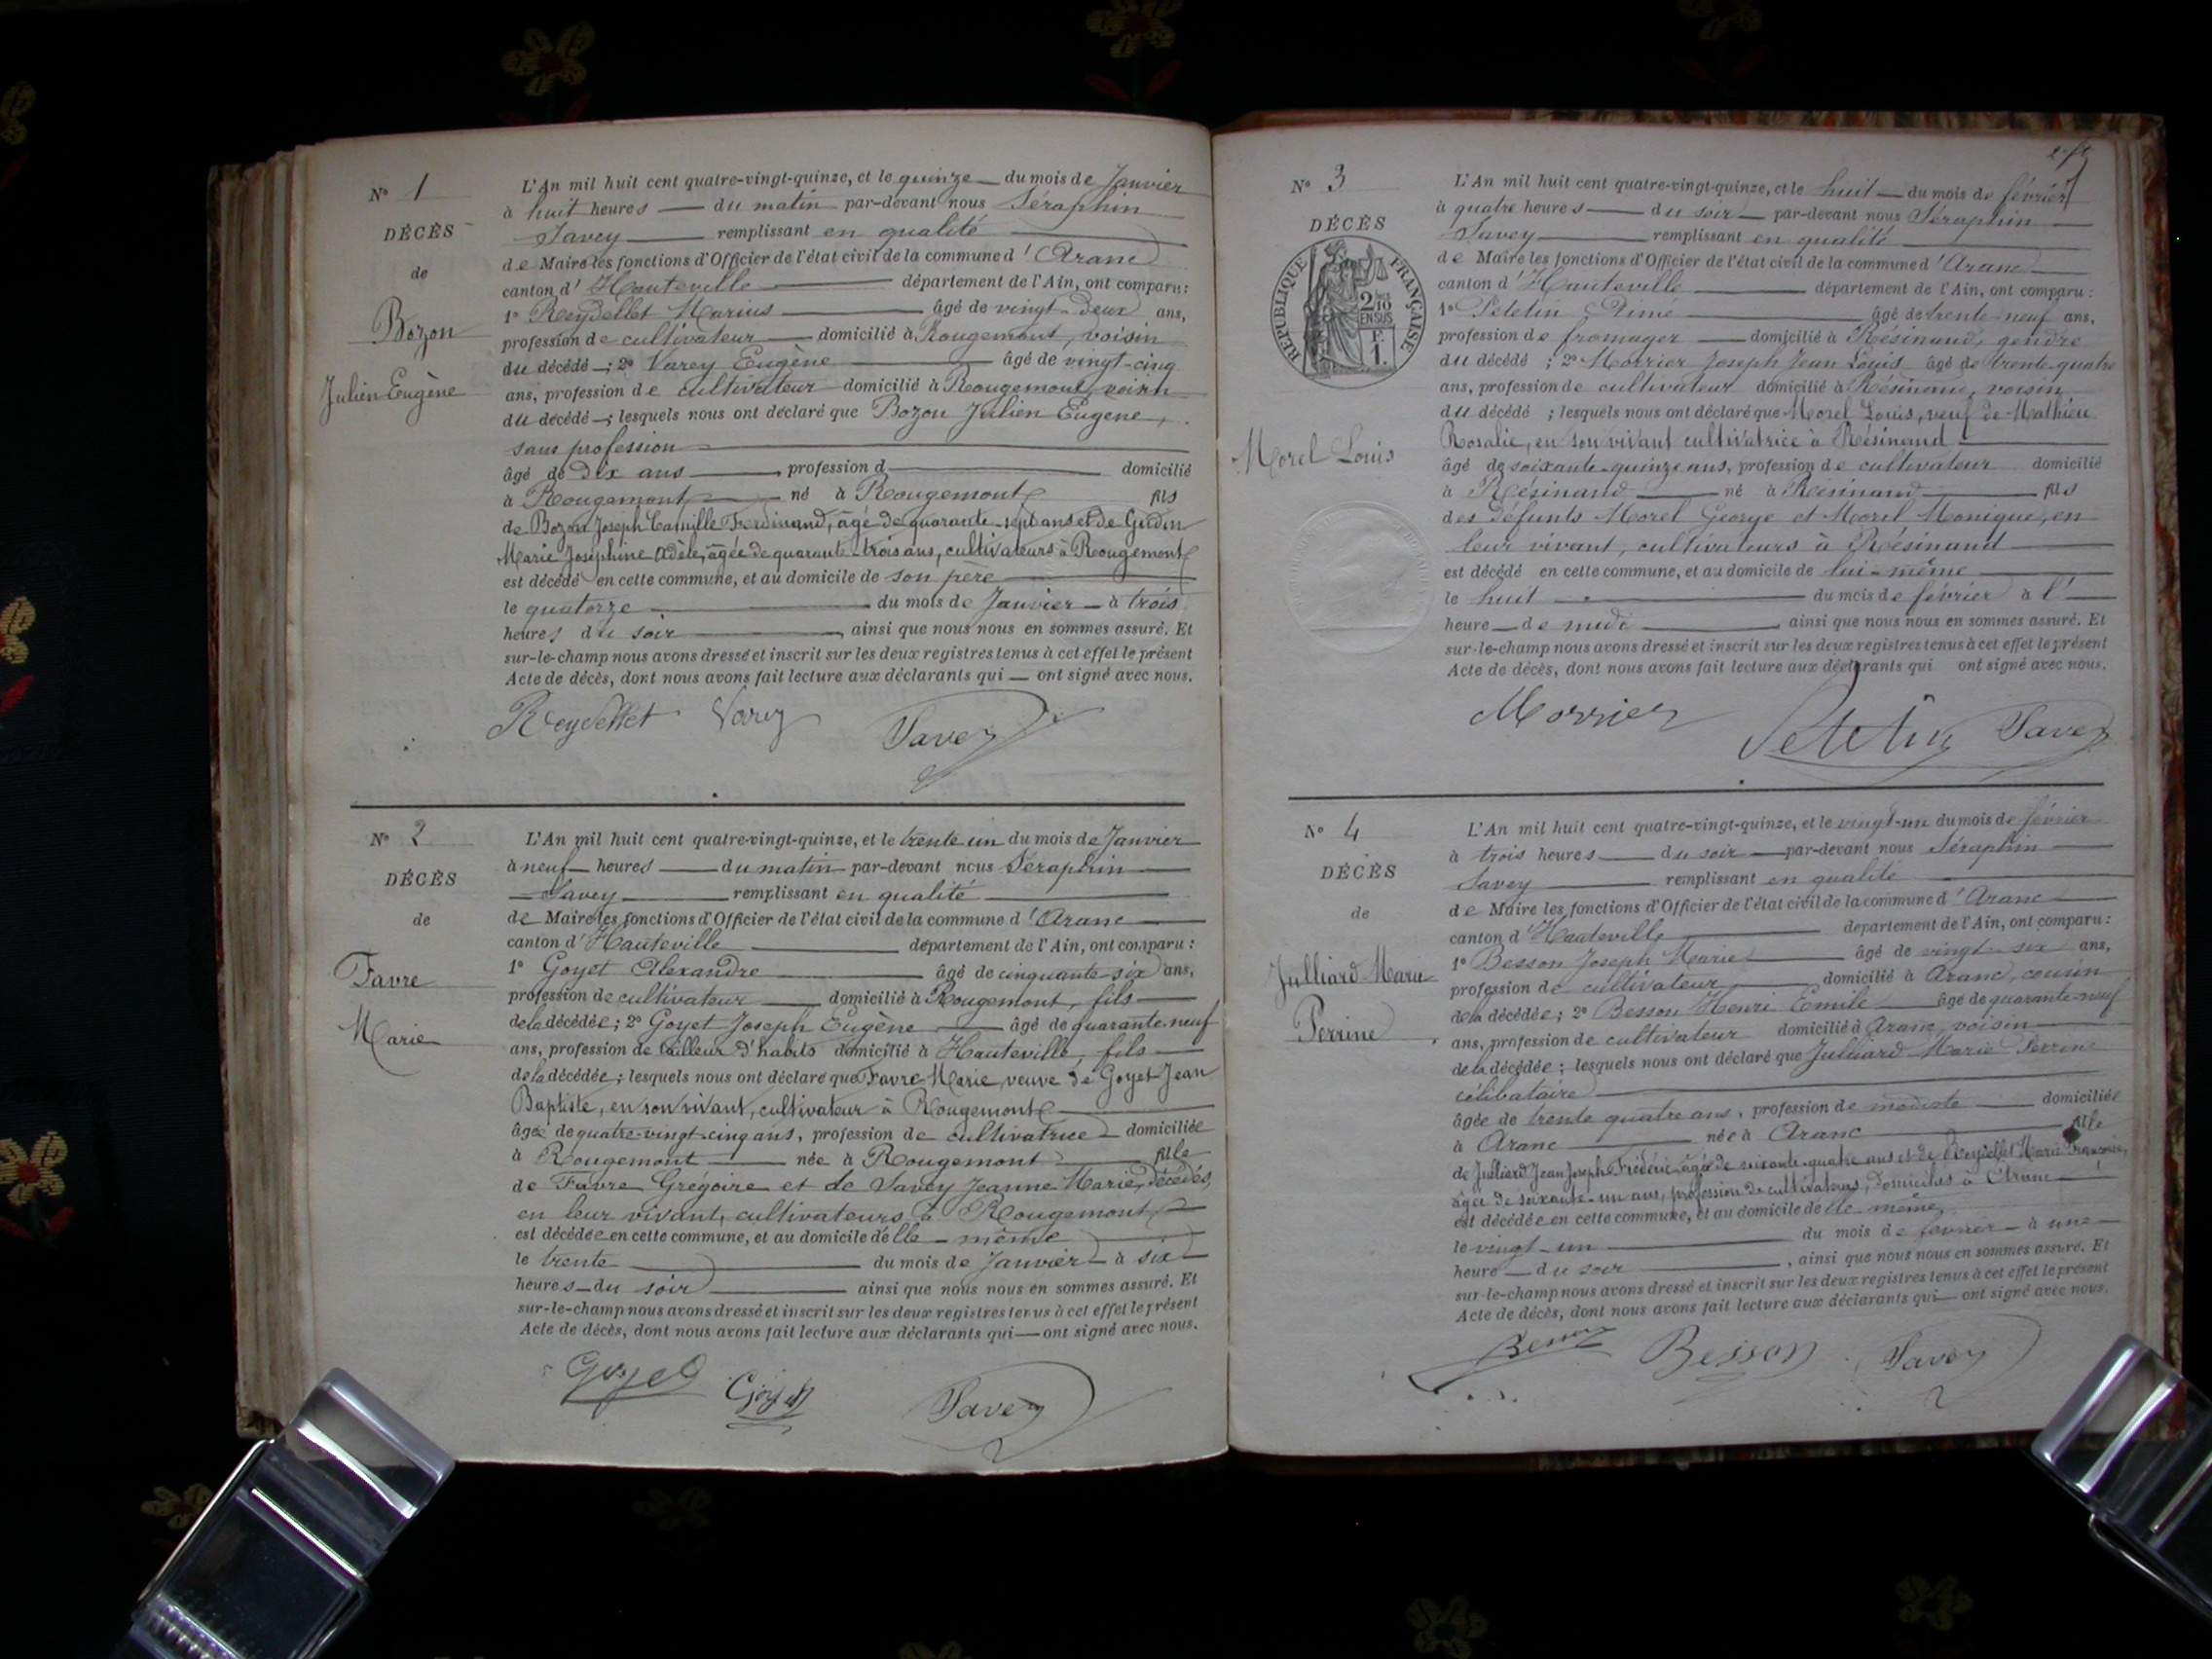 Nº 1
DÉCÈS
de
Bozon
Julien Eugène
L'An mil huit cent quatre-vingt-quinze, et le quinze du mois de Janvier
à huit heures du matin par-devant nous Séraphin
Savey remplissant en qualité
de Maire les fonctions d'Officier de l'état civil de la commune d'Aranc
canton d'Hauteville département de l'Ain, ont comparu :
1º Reydellet Marius âgé de vingt-deux ans,
profession de cultivateur domicilié à Rougemont, voisin
du décédé ; 2º Varey Eugène âgé de vingt-cinq
ans, profession de cultivateur domicilié à Rougemont, voisin
du décédé ; lesquels nous ont déclaré que Bozon Julien Eugène,
sans profession
âgé de dix ans, profession d domicilié
à Rougemont né à Rougemont fils
de Bozon Joseph Camille Ferdinand, âgé de quarante-sept ans et de Gudin
Marie Joséphine Adèle, âgée de quarante-trois ans, cultivateurs à Rougemont
est décédé en cette commune, et au domicile de son père
le quatorze du mois de Janvier à trois
heures du soir, ainsi que nous nous en sommes assuré. Et
sur-le-champ nous avons dressé et inscrit sur les deux registres tenus à cet effet le présent
Acte de décès, dont nous avons fait lecture aux déclarants qui ont signé avec nous.
Reydellet Varey Savey
Nº 2
DÉCÈS
de
Favre
Marie
L'An mil huit cent quatre-vingt-quinze, et le trente un du mois de Janvier
à neuf heures du matin par-devant nous Séraphin
Savey remplissant en qualité
de Maire les fonctions d'Officier de l'état civil de la commune d'Aranc
canton d'Hauteville département de l'Ain, ont comparu :
1º Goyet Alexandre âgé de cinquante-six ans,
profession de cultivateur domicilié à Rougemont, fils
de la décédée ; 2º Goyet Joseph Eugène âgé de quarante-neuf
ans, profession de tailleur d'habits domicilié à Hauteville, fils
de la décédée ; lesquels nous ont déclaré que Favre Marie, veuve de Goyet Jean
Baptiste, en son vivant, cultivateur à Rougemont
âgée de quatre-vingt-cinq ans, profession de cultivatrice domiciliée
à Rougemont née à Rougemont fille
de Favre Grégoire et de Savey Jeanne Marie, décédés,
en leur vivant, cultivateurs à Rougemont
est décédée en cette commune, et au domicile d'elle-même
le trente du mois de Janvier à six
heures du soir ainsi que nous nous en sommes assuré. Et
sur-le-champ nous avons dressé et inscrit sur les deux registres tenus à cet effet le présent
Acte de décès, dont nous avons fait lecture aux déclarants qui ont signé avec nous.
Goyet Goyet Savey
Nº 3
DÉCÈS
RÉPUBLIQUE FRANÇAISE
2/10 EN SUS
F.
1.
Morel Louis
L'An mil huit cent quatre-vingt-quinze, et le huit du mois de février
à quatre heures du soir par-devant nous Séraphin
Savey remplissant en qualité
de Maire les fonctions d'Officier de l'état civil de la commune d'Aranc
canton d'Hauteville département de l'Ain, ont comparu :
1º Peletin Aimé âgé de trente-neuf ans,
profession de fromager domicilié à Résinand, gendre
du décédé ; 2º Morrier Joseph Jean Louis âgé de trente-quatre
ans, profession de cultivateur domicilié à Résinand, voisin
du décédé ; lesquels nous ont déclaré que Morel Louis, veuf de Mathieu
Rosalie, en son vivant cultivatrice à Résinand
âgé de soixante-quinze ans, profession de cultivateur domicilié
à Résinand né à Résinand fils
des défunts Morel George et Morel Monique, en
leur vivant, cultivateurs à Résinand
est décédé en cette commune, et au domicile de lui-même
le huit du mois de février à l'
heure de midi, ainsi que nous nous en sommes assuré. Et
sur-le-champ nous avons dressé et inscrit sur les deux registres tenus à cet effet le présent
Acte de décès, dont nous avons fait lecture aux déclarants qui ont signé avec nous.
Morrier Peletin Savey
Nº 4
DÉCÈS
de
Julliard Marie
Perrine
L'An mil huit cent quatre-vingt-quinze, et le vingt-un du mois de février
à trois heures du soir par-devant nous Séraphin
Savey remplissant en qualité
de Maire les fonctions d'Officier de l'état civil de la commune d'Aranc
canton d'Hauteville département de l'Ain, ont comparu :
1º Besson Joseph Marie âgé de vingt six ans,
profession de cultivateur domicilié à Aranc, cousin
de la décédée ; 2º Besson Henri Emile âgé de quarante-neuf
ans, profession de cultivateur domicilié à Aranc, voisin
de la décédée ; lesquels nous ont déclaré que Julliard Marie Perrine
célibataire
âgée de trente quatre ans, profession de modiste domiciliée
à Aranc née à Aranc fille
de Julliard Jean Joseph Frédéric, âgé de soixante-quatre ans et de Reydellet Marie Françoise,
âgée de soixante-un ans, profession de cultivateurs, domiciliés à Aranc
est décédée en cette commune, et au domicile d'elle-même,
le vingt-un du mois de février à une
heure du soir, ainsi que nous nous en sommes assuré. Et
sur-le-champ nous avons dressé et inscrit sur les deux registres tenus à cet effet le présent
Acte de décès, dont nous avons fait lecture aux déclarants qui ont signé avec nous.
Besson Besson Savey